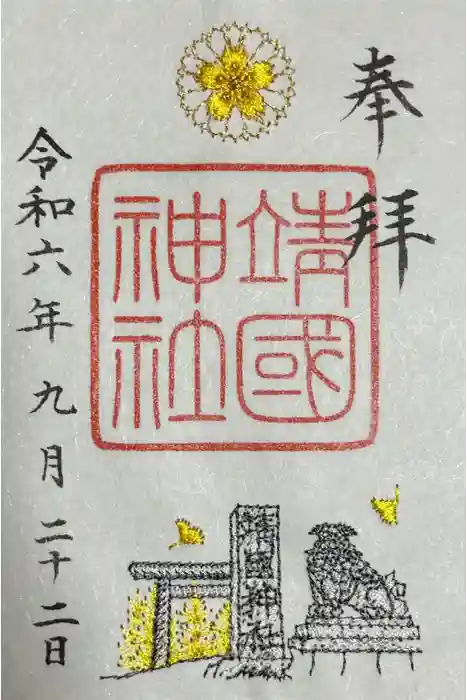 奉拝
靖國
神社
靖國神社
令和六年 九月 二十二日